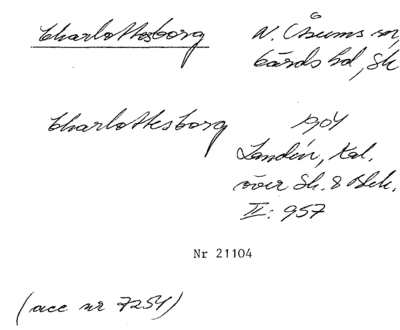 Charlottesborg N. Åsums sn,
Gärds hd, Sk
Charlottesborg 1904
Landin, Kal.
över Sk. & Blek.
II: 957
Nr 21104
(acc nr 7254)